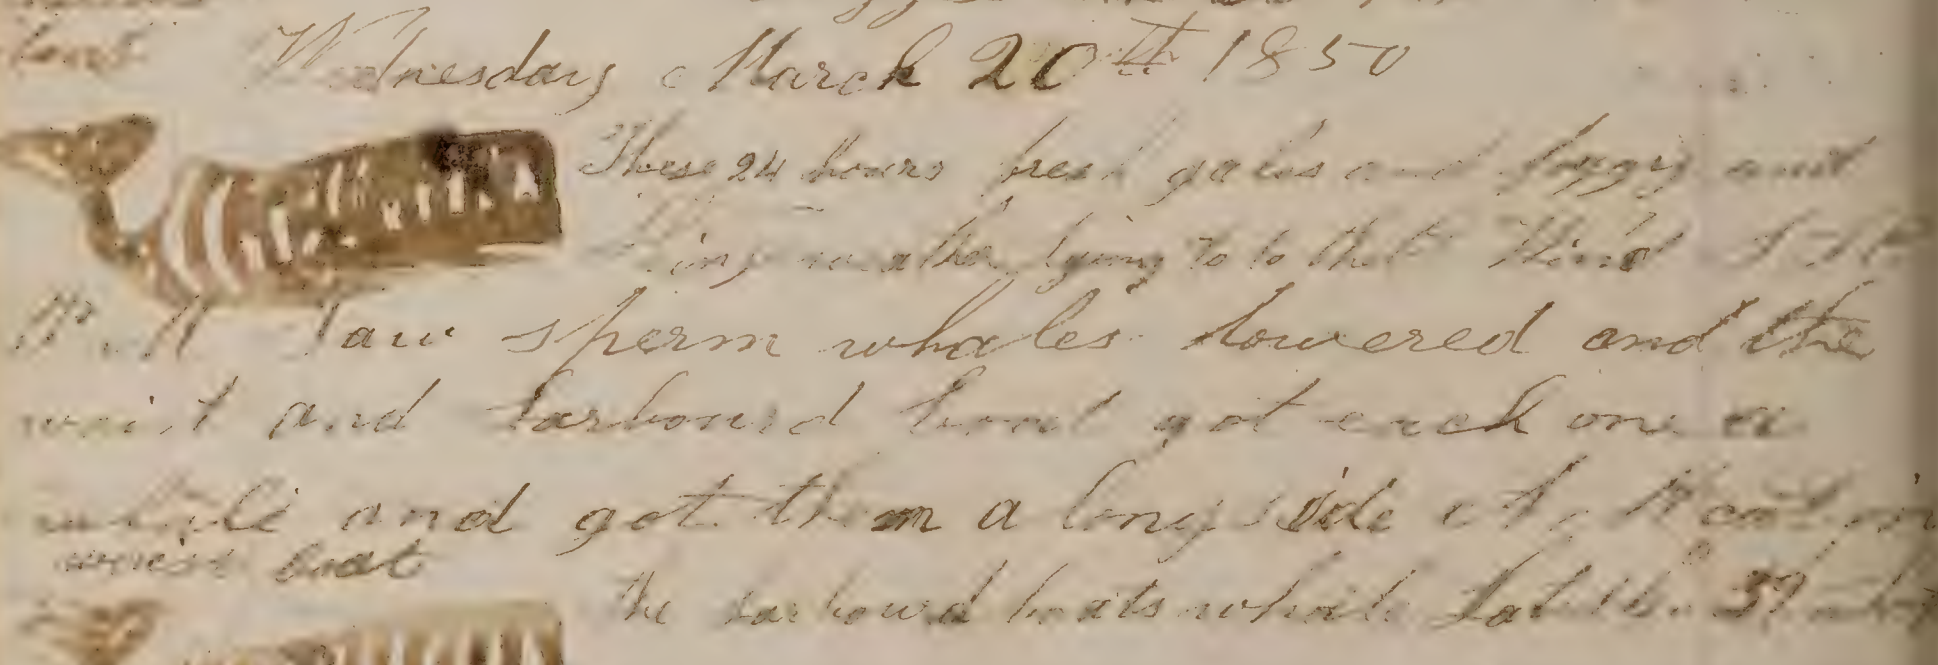 boat
Wednesday March 20th 1850
These 24 hours fresh gales and foggy and
weather lying to to the Third
P. M Saw sperm whales lowered and the
waist and larboard boat got each one a
whale and got them a long side A. M cut in
waist boat
the larboard boats whale Lat 37